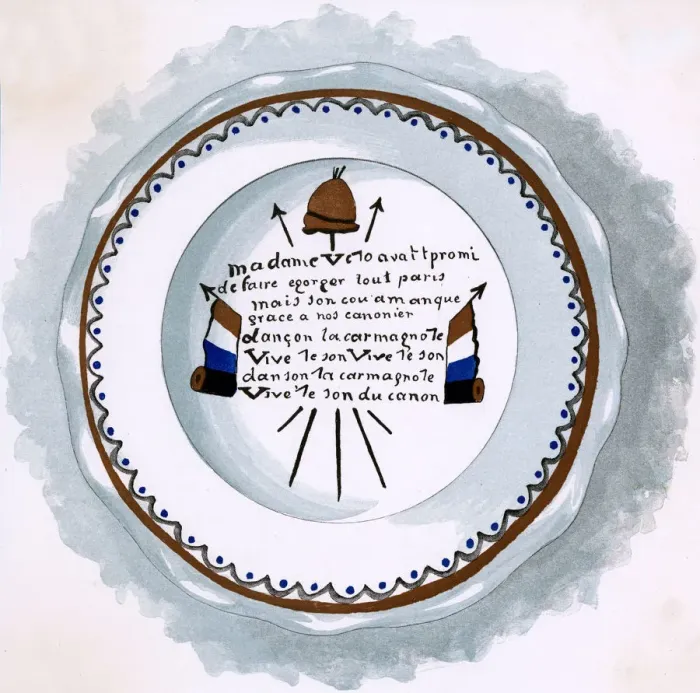 madame Veto avait promi
de faire egorger tout paris
mais son cou a manque
grace a nos canonier
dançon la carmagnole
Vive le son Vive le son
danson la carmagnole
Vive le son du canon